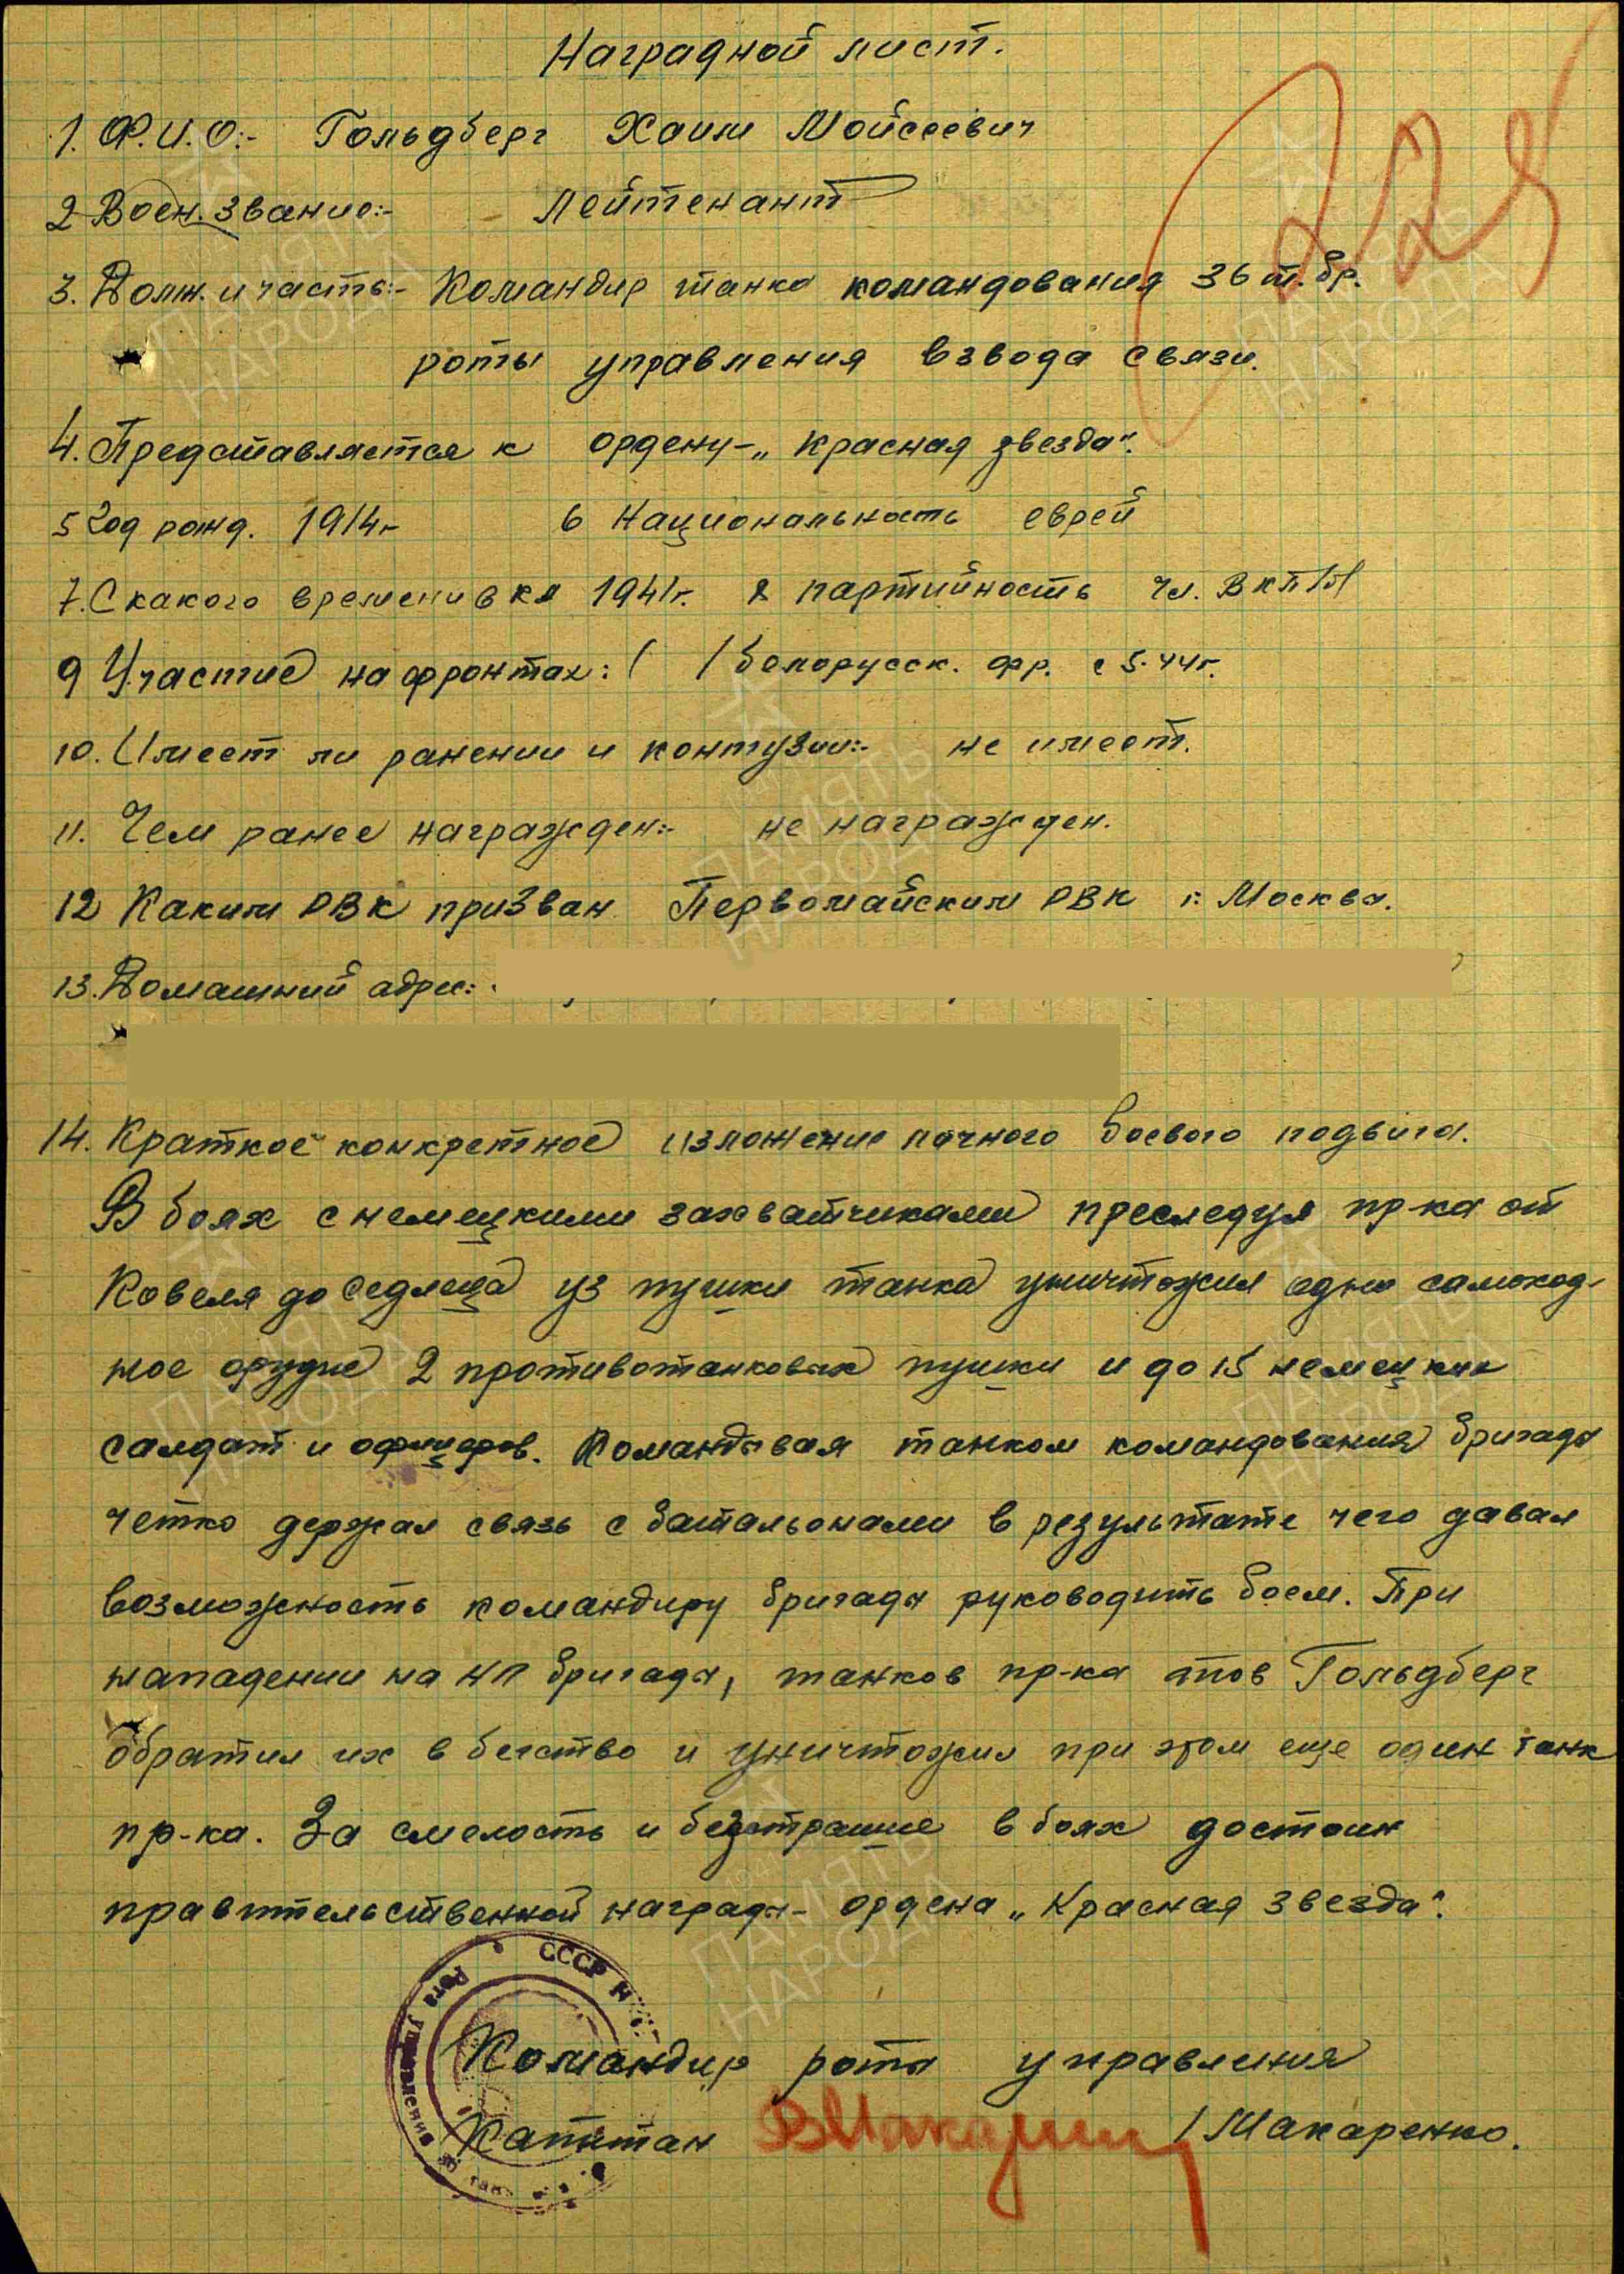 Наградной лист.
228
1. Ф.И.О:- Гольдберг Хаим Мойсеевич
2 Воен. звание:- Лейтенант
3. Должн. и часть:- Командир танка командования 36 т.бр.
роты управления взвода связи.
4. Представляется к ордену-„Красная звезда".
5 Год рожд. 1914г 6 Национальность еврей
7. С какого времени в КА 1941г. 8 партийность чл. ВКП/б/
9 Участие на фронтах: ( 1 белорусск. фр. с 5.44г.
10. Имеет ли ранении и контузии:- не имеет.
11. Чем ранее награжден:- не награжден.
12 Каким РВК призван Первомайским РВК г. Москва.
13. Домашний адрес:
14. Краткое конкретное изложение личного боевого подвига.
В боях с немецкими захватчиками преследуя пр-ка от
Ковеля до Седлеца из пушки танка уничтожил одно самоход-
ное орудие 2 противотанковых пушки и до 15 немецких
салдат и офицеров. Командывая танком командования бригады
четко держал связь с батальонами в результате чего давал
возможность командиру бригады руководить боем. При
нападении на НП бригады, танков пр-ка тов Гольдберг
обратил их в бегство и уничтожил при этом еще один танк
пр-ка. За смелость и безстрашие в боях достоин
правительственной награды- ордена „Красная звезда".
СССР Н
Рота управления
Командир роты управления
Капитан ВМакарен /Макаренко.
ПАМЯТЬ
НАРОДА